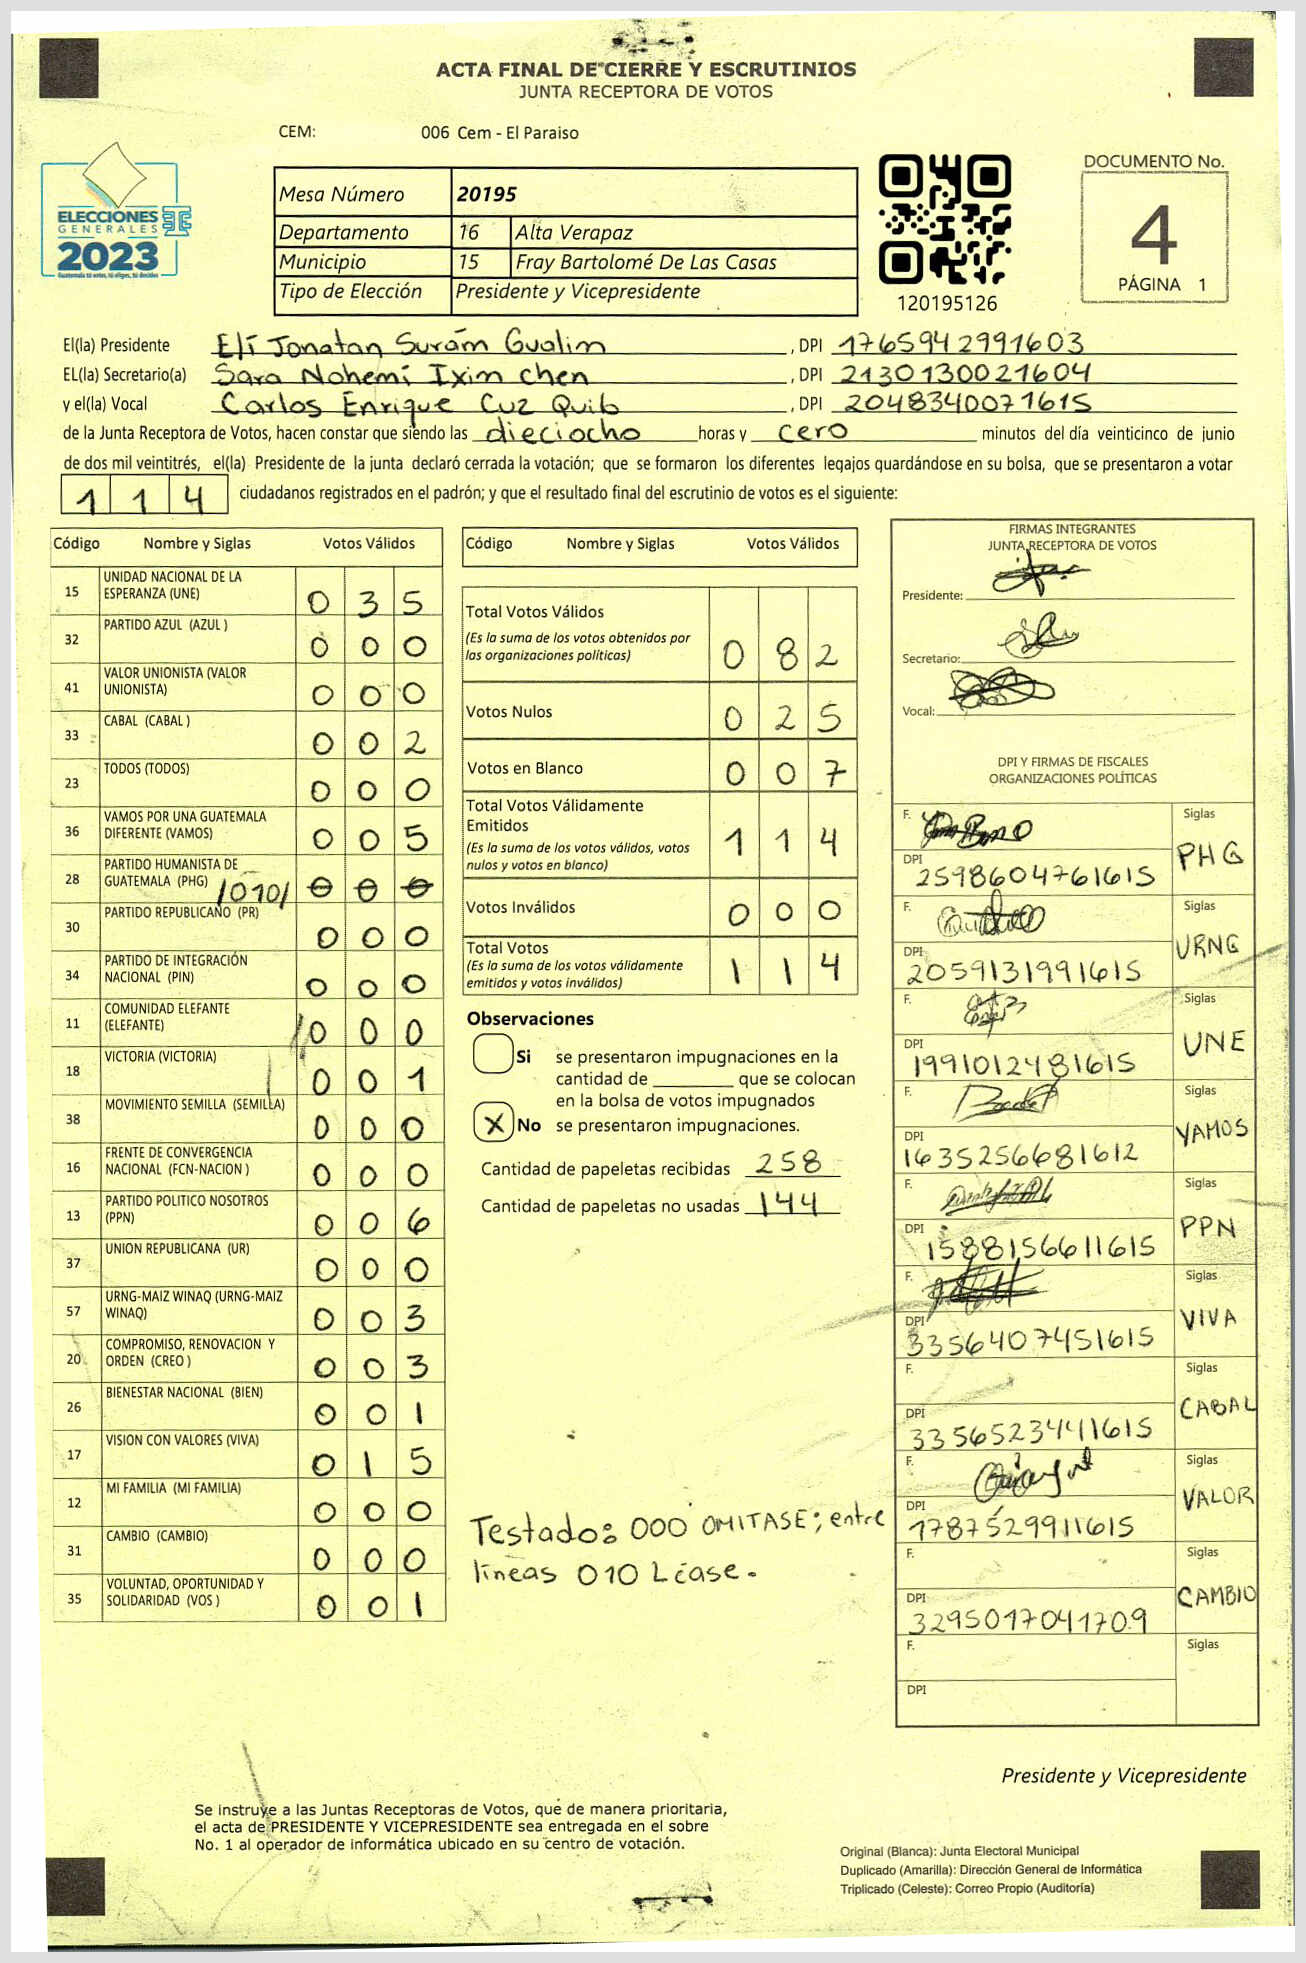 ACTA FINAL DE CIERRE Y ESCRUTINIOS
JUNTA RECEPTORA DE VOTOS
CEM: 006 Cem - El Paraiso
ELECCIONES
GENERALES
2023
Mesa Número 20195
Departamento 16 Alta Verapaz
Municipio 15 Fray Bartolomé De Las Casas
Tipo de Elección Presidente y Vicepresidente
120195126
DOCUMENTO No.
4
PÁGINA 1
El(la) Presidente Elí Jonatan Surám Gualim , DPI 1765942991603
EL(la) Secretario(a) Sara Nohemí Ixim Chen , DPI 2130130021604
y el(la) Vocal Carlos Enrique Cuz Quib , DPI 2048340071615
de la Junta Receptora de Votos, hacen constar que siendo las dieciocho horas y cero minutos del día veinticinco de junio
de dos mil veintitrés, el(la) Presidente de la junta declaró cerrada la votación; que se formaron los diferentes legajos quardándose en su bolsa, que se presentaron a votar
114 ciudadanos registrados en el padrón; y que el resultado final del escrutinio de votos es el siguiente:
Código Nombre y Siglas Votos Válidos
15 UNIDAD NACIONAL DE LA ESPERANZA (UNE) 035
32 PARTIDO AZUL (AZUL ) 000
41 VALOR UNIONISTA (VALOR UNIONISTA) 000
33 CABAL (CABAL ) 002
23 TODOS (TODOS) 000
36 VAMOS POR UNA GUATEMALA DIFERENTE (VAMOS) 005
28 PARTIDO HUMANISTA DE GUATEMALA (PHG) /010/ 000
30 PARTIDO REPUBLICANO (PR) 000
34 PARTIDO DE INTEGRACIÓN NACIONAL (PIN) 000
11 COMUNIDAD ELEFANTE (ELEFANTE) 000
18 VICTORIA (VICTORIA) 001
38 MOVIMIENTO SEMILLA (SEMILLA) 000
16 FRENTE DE CONVERGENCIA NACIONAL (FCN-NACION ) 000
13 PARTIDO POLITICO NOSOTROS (PPN) 006
37 UNION REPUBLICANA (UR) 000
57 URNG-MAIZ WINAQ (URNG-MAIZ WINAQ) 003
20 COMPROMISO, RENOVACION Y ORDEN (CREO ) 003
26 BIENESTAR NACIONAL (BIEN) 001
17 VISION CON VALORES (VIVA) 015
12 MI FAMILIA (MI FAMILIA) 000
31 CAMBIO (CAMBIO) 000
35 VOLUNTAD, OPORTUNIDAD Y SOLIDARIDAD (VOS ) 001
Código Nombre y Siglas Votos Válidos
Total Votos Válidos 082
(Es la suma de los votos obtenidos por
las organizaciones políticas)
Votos Nulos 025
Votos en Blanco 007
Total Votos Válidamente
Emitidos 114
(Es la suma de los votos válidos, votos
nulos y votos en blanco)
Votos Inválidos 000
Total Votos 114
(Es la suma de los votos válidamente
emitidos y votos inválidos)
Observaciones
Si se presentaron impugnaciones en la
cantidad de ________ que se colocan
en la bolsa de votos impugnados
X No se presentaron impugnaciones.
Cantidad de papeletas recibidas 258
Cantidad de papeletas no usadas 144
Testado: 000 OMITASE; entre
líneas 010 Léase.
FIRMAS INTEGRANTES
JUNTA RECEPTORA DE VOTOS
Presidente:
Secretario:
Vocal:
DPI Y FIRMAS DE FISCALES
ORGANIZACIONES POLÍTICAS
F. Siglas PHG
DPI 2598604761615
F. Siglas URNG
DPI 2059131991615
F. Siglas UNE
DPI 1991012481615
F. Siglas VAMOS
DPI 1635256681612
F. Siglas PPN
DPI 1588156611615
F. Siglas VIVA
DPI 3356407451615
F. Siglas CABAL
DPI 3356523441615
F. Siglas VALOR
DPI 1787529911615
F. Siglas CAMBIO
DPI 3295017041709
F. Siglas
DPI
Presidente y Vicepresidente
Se instruye a las Juntas Receptoras de Votos, que de manera prioritaria,
el acta de PRESIDENTE Y VICEPRESIDENTE sea entregada en el sobre
No. 1 al operador de informática ubicado en su centro de votación.
Original (Blanca): Junta Electoral Municipal
Duplicado (Amarilla): Dirección General de Informática
Triplicado (Celeste): Correo Propio (Auditoría)